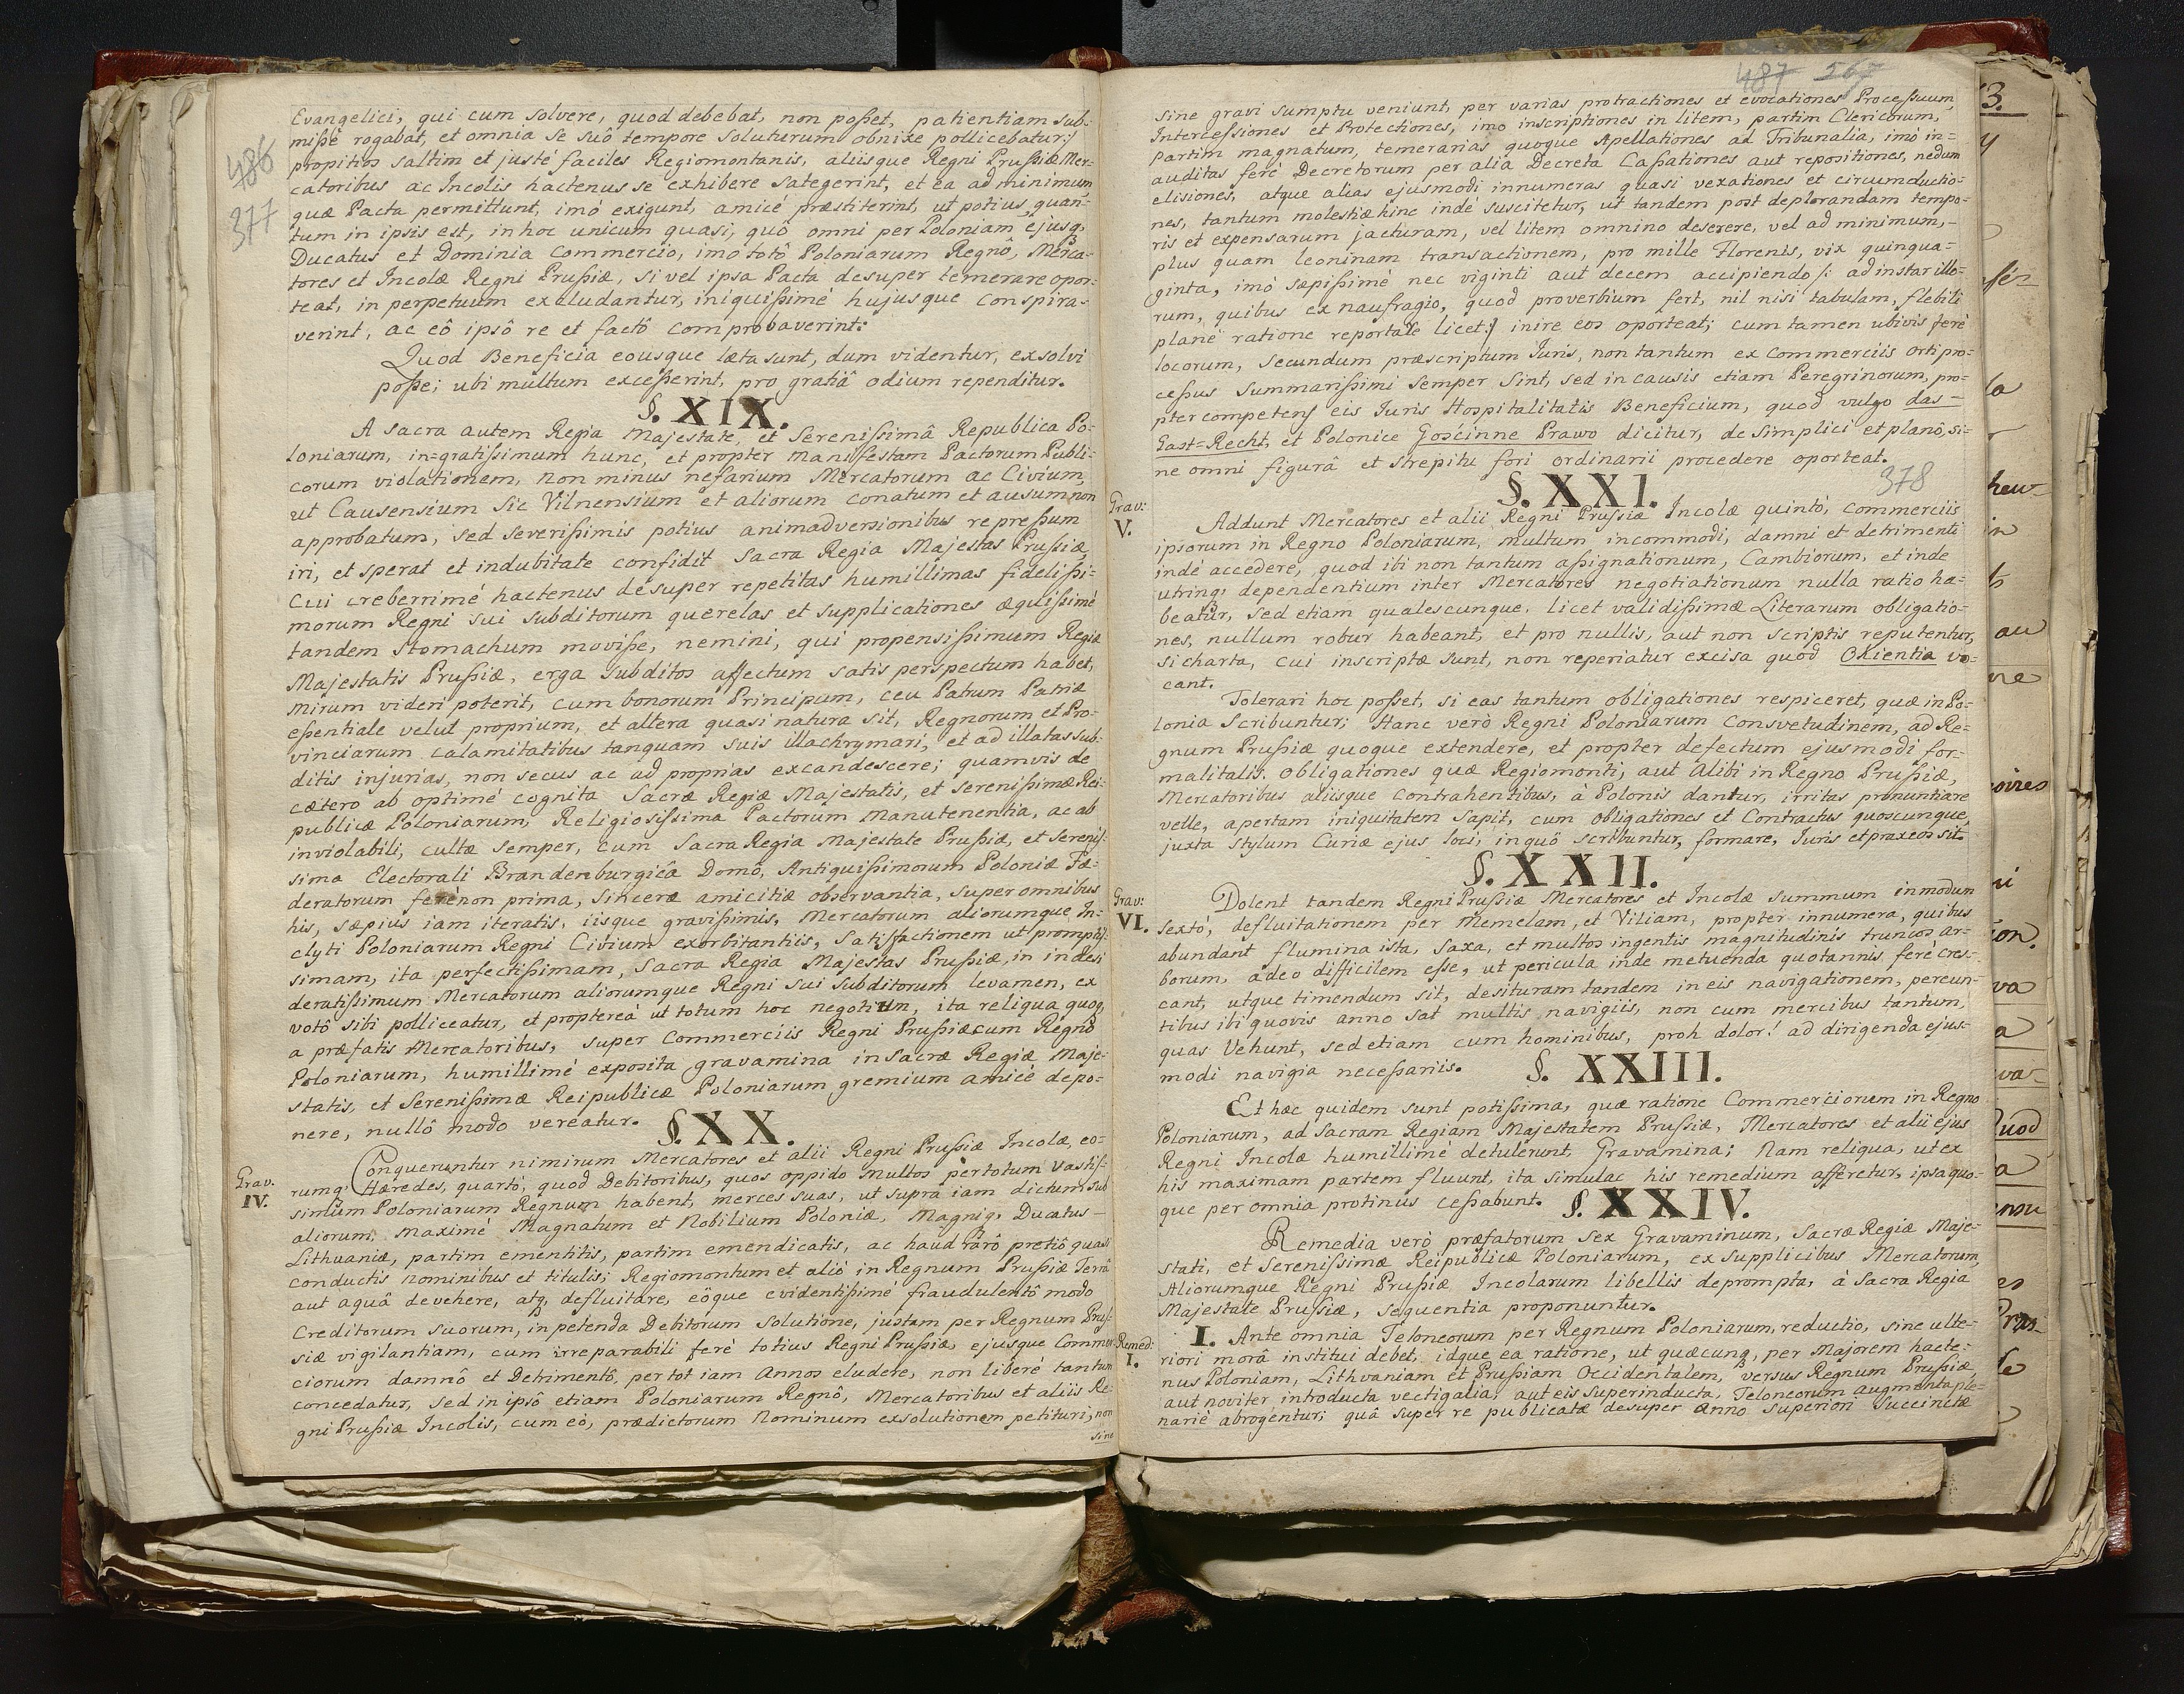 486
377
Evangelici, qui cum solvere, quod debebat, non posset, patientiam sub-
missè rogabat, et omnia se suô tempore soluturum obnixe pollicebatur:/
propitios saltim et justé faciles Regiomontanis, aliisque Regni Prussiæ Mer-
catoribus ac Incolis hactenus se exhibere sategerint, et ea ad minimum
quæ Pacta permittunt, imó exigunt, amicé præstiterint, ut potius quan-
tum in ipsis est, in hoc unicum quasi, quô omni per Poloniam ejusq.
Ducatus et Dominia Commercio, imo totô Poloniarum Regnô, Merca-
tores et Incolæ Regni Prussiæ, si vel ipsa Pacta desuper temerare opor-
teat, in perpetuum excludantur, iniquissimé hujusque conspira-
verint, ac eô ipsô re et factô comprobaverint:
Quod Beneficia eousque læta sunt, dum videntur, exsolvi
posse; ubi multum excesserint, pro gratiâ odium rependitur.
§. XIX.
A Sacra autem Regia Majestate, et Serenissimâ Republica Po-
loniarum, in=gratissimum hunc, et propter manifestam Pactorum Publi-
corum violationem, non minus nefarium Mercatorum ac Civium,
ut Causensium sic Vilnensium et aliorum conatum et ausum non
approbatum, sed severissimis potius animadversionibus repressum
iri, et sperat et indubitate confidit Sacra Regia Majestas Prussiæ,
Cui creberrimé hactenus desuper repetitas humillimas fidelissi-
morum Regni sui subditorum querelas et supplicationes æquissimé
tandem stomachum movisse, nemini, qui propensissimum Regiæ
Majestatis Prussiæ, erga subditos affectum satis perspectum habet,
mirum videri poterit, cum bonorum Principum, ceu Patrum Patriæ
essentiale velut proprium, et altera quasi natura sit, Regnorum et Pro-
vinciarum calamitatibus tanquam suis illachrymari, et ad illatas sub-
ditis injurias, non secus ac ad proprias excandescere; quamvis de
cætero ab optimé cognita Sacræ Regiæ Majestatis, et Serenissimæ Rei-
publicæ Poloniarum, Religiosissima Pactorum Manutenentia, ac ab
inviolabili, cultæ semper, cum Sacra Regia Majestate Prussiæ, et Serenis-
sima Electorali Brandenburgicâ Domô, Antiquissimorum Poloniæ Fæ-
deratorum ferè non prima, sinceræ amicitiæ observantia, super omnibus
his, sæpius iam iteratis, iisque gravissimis, Mercatorum aliorumque In-
clyti Poloniarum Regni Civium exorbitantiis, Satisfactionem ut promptis-
simam, ita perfectissimam, Sacra Regia Majestas Prussiæ, in indesi
deratissimum Mercatorum aliorumque Regni sui subditorum levamen, ex
votô sibi polliceatur, et proptereà ut totum hoc negotium, ita reliqua quoq,
a præfatis Mercatoribus, super Commerciis Regni Prussiæ cum Regnô
Poloniarum, humillimé exposita gravamina in Sacræ Regiæ Maje-
statis, et Serenissimæ Reipublicæ Poloniarum gremium amicé depo-
nere, nullô modo vereatur.
§. XX.
Grav.
IV.
Conqueruntur nimirum Mercatores et alii Regni Prussiæ Incolæ, eo-
rumq, Hæredes, quartò, quod Debitoribus, quos oppido multos per totum Vastis-
simum Poloniarum Regnum habent, merces suas, ut supra iam dictum sub
aliorum, maximé Magnatum et Nobilium Poloniæ, Magniq, Ducatus-
Lithuaniæ, partim ementitis, partim emendicatis, ac haud rarô pretiô quasi
conductis nominibus et titulis; Regiomontum et aliò in Regnum Prussiæ terrâ
aut aquâ devehere, atq, defluitare, eôque evidentissimé fraudulentô modo
Creditorum suorum, in petenda Debitorum solutione, justam per Regnum Prus-
siæ vigilantiam, cum irreparabili ferè totius Regni Prussiæ, ejusque Commer-
ciorum damnô et Detrimentô, per tot iam Annos eludere, non liberè tantum
concedatur, sed in ipsô etiam Poloniarum Regnô, Mercatoribus et aliis Re-
gni Prussiæ Incolis, cum eò, prædictorum Nominum exsolutionem petituri, non
sine
487 567
sine gravi sumptu veniunt, per varias protractiones et evocationes Processuum,
Intercessiones et Protectiones, imo inscriptiones in litem, partim Clericorum,
partim magnatum, temerarias quoque Apellationes ad Tribunalia, imò in-
auditas ferè Decretorum per alia Decreta Cassationes aut repositiones, nedum
elisiones, atque alias ejusmodi innumeras quasi vexationes et circumductio-
nes, tantum molestiæ hinc indé suscitetur, ut tandem post deplorandam tempo-
ris et expensarum jacturam, vel litem omnino deserere, vel ad minimum,-
plus quam leoninam transactionem, pro mille Florenis, vix quinqua-
ginta, imò sæpissimè nec viginti aut decem accipiendo /: ad instar illo-
rum, quibus ex naufragio, quod proverbium fert, nil nisi tabulam, flebili
planè ratione reportare licet:/ inire eos oporteat; cum tamen ubivis ferè
locorum, secundum præscriptum Juris, non tantum ex Commerciis orti pro-
cessus summarissimi semper sint, sed in causis etiam Peregrinorum, pro-
pter competens eis Juris Hospitalitatis Beneficium, quod vulgo das-
Gast=Recht, et Polonice Gościnne Prawo dicitur, de simplici et planô, si-
ne omni figurâ et strepitu fori ordinarii procedere oporteat.
378
§. XXI.
Grav:
V.
Addunt Mercatores et alii Regni Prussiæ Incolæ quintò, commerciis
ipsorum in Regno Poloniarum, multum incommodi, damni et detrimenti
indé accedere, quod ibi non tantum assignationum, Cambiorum, et inde
utrinq, dependentium inter Mercatores negotiationum nulla ratio ha-
beatur, sed etiam qualescunque, licet validissimæ Literarum obligatio-
nes, nullum robur habeant, et pro nullis, aut non scriptis reputentur,
si charta, cui inscriptæ sunt, non reperiatur excisa quod Okientia vo-
cant.
Tolerari hoc posset, si eas tantum obligationes respiceret, quæ in Po-
lonia scribuntur; Hanc verò Regni Poloniarum Consvetudinem, ad Re-
gnum Prussiæ quoque extendere, et propter defectum ejusmodi for-
malitalis. Obligationes quæ Regiomonti, aut Alibi in Regno Prussiæ,
Mercatoribus aliisque Contrahentibus, à Polonis dantur, irritas pronuntiare
velle, apertam iniquitatem sapit, cum obligationes et Contractus quoscunque,
juxta stylum Curiæ ejus loci, in quô scribuntur, formare, Juris et praxeos sit.
§. XXII.
Grav:
VI.
Dolent tandem Regni Prussiæ Mercatores et Incolæ summum in modum
sextò, defluitationem per Memelam, et Viliam, propter innumera, quibus
abundant flumina ista, saxa, et multos ingentis magnitudinis truncos ar-
borum, adeo difficilem esse, ut pericula inde metuenda quotannis ferè cres-
cant, utque timendum sit, desituram tandem in eis navigationem, pereun-
tibus ibi quovis anno sat multis navigiis, non cum mercibus tantum,
quas Vehunt, sed etiam cum hominibus, proh dolor! ad dirigenda ejus-
modi navigia necessariis.
§. XXIII.
Et hæc quidem sunt potissima, quæ ratione Commerciorum in Regno
Poloniarum, ad Sacram Regiam Majestatem Prussiæ, Mercatores et alii ejus
Regni Incolæ humillimé detulerunt, Gravamina; Nam reliqua, ut ex
his maximam partem fluunt, ita simulac his remedium afferetur, ipsa quo-
que per omnia protinus cessabunt.
§. XXIV.
Remedia verò præfatorum sex Gravaminum, Sacræ Regiæ Maje-
stati, et Serenissimæ Reipublicæ Poloniarum, ex supplicibus Mercatorum,
Aliorumque Regni Prussiæ Incolarum libellis deprompta, à Sacra Regia
Majestate Prussiæ, sequentia proponuntur.
Remed:
I.
I. Ante omnia Teloneorum per Regnum Poloniarum, reductio, sine ulte-
riori morâ institui debet, idque ea ratione, ut quæcunq, per Majorem hacte-
nus Poloniam, Lithvaniam et Prussiam Occidentalem, versus Regnum Prussiæ
aut noviter introducta vectigalia, aut eis superinducta, Teloneorum augmenta ple-
nariè abrogentur; quâ super re publicatæ desuper Anno superiori succinctæ